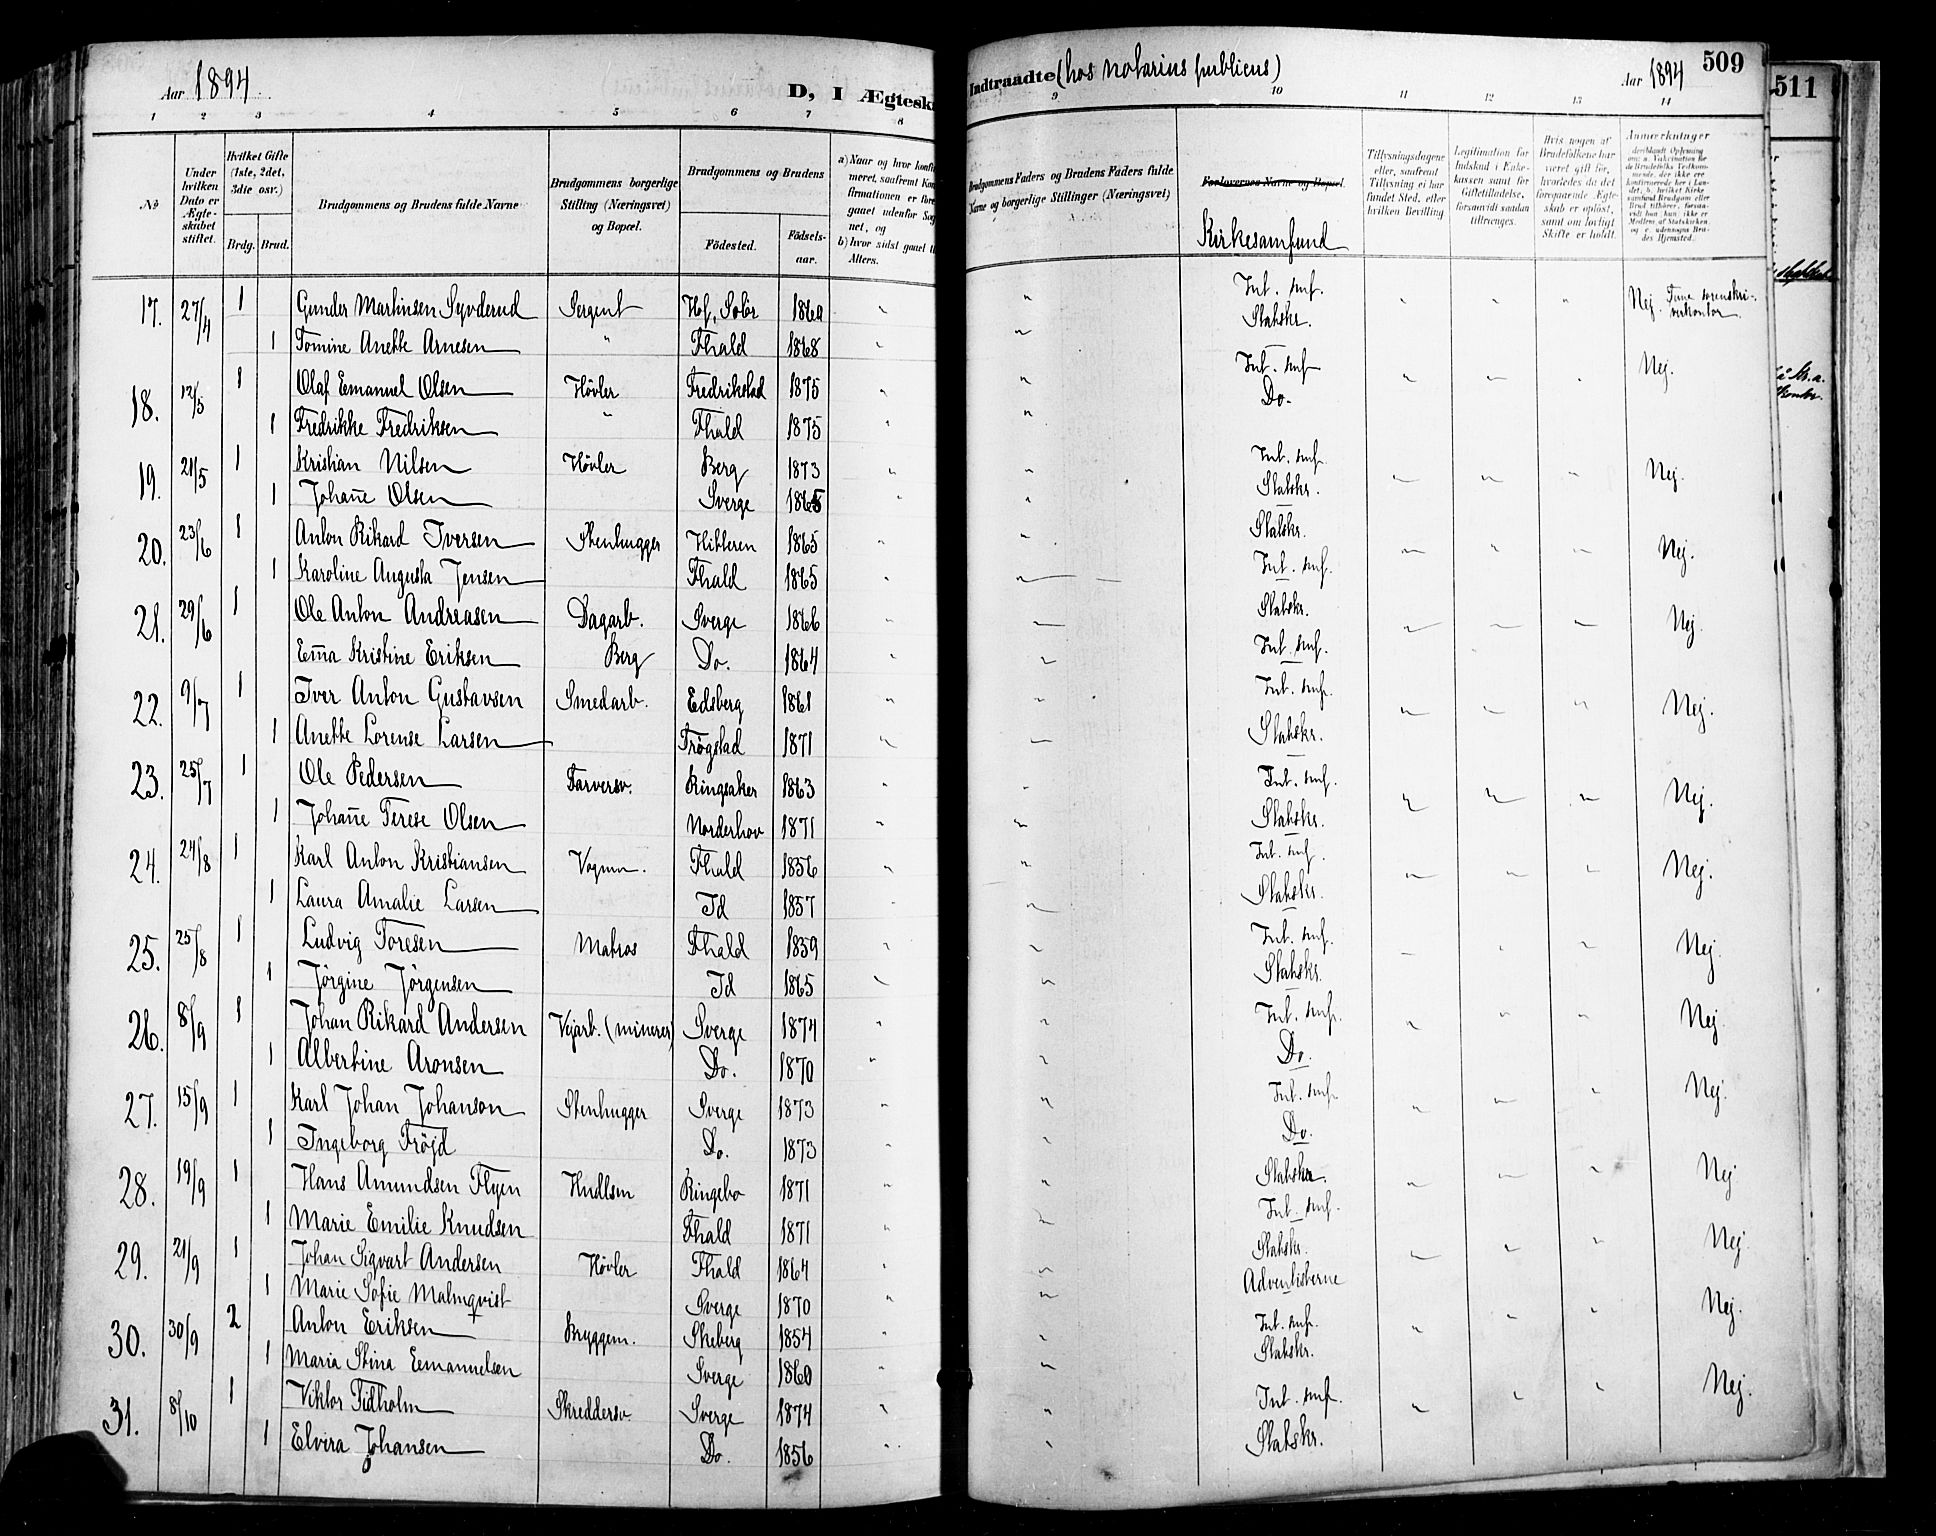 Aar 1894. D, I Ægtesk
Indtraadte (hos notarius publicus) Aar 1894 509
511
1 2 3 4 5 6 7 8 9 10 11 12 13 14
No
Under hvilken Dato er Ægteskabet stiftet.
Hvilket Gifte (1ste, 2det, 3die osv.)
Brdg. Brud.
Brudgommens og Brudens fulde Navne
Brudgommens borgerlige Stilling (Næringsvei) og Bopæl.
Brudgommens og Brudens
Fødested. Fødselsaar.
a) Naar og hvor konfir
meret, saafremt Kon
firmationen er fore
gaaet udenfor Sog
net, og
b) hvor sidst gaaet til
Alters.
Brudgommens Faders og Brudens Faders fulde Navne og borgerlige Stillinger (Næringsvei)
Forlovernes Navne og Bopæl.
Kirkesamfund
Tillysningsdagene eller, saafremt Tillysning ei har fundet Sted, efter hvilken Bevilling.
Legitimation for Indskud i Enkekassen samt for Giftetilladelse, forsaavidt saadan tiltrænges.
Hvis nogen af Brudefolkene har været gift før, hvorledes da det foregaaende Ægteskab er opløst, samt om lovligt Skifte er holdt.
Anmærkninger
17. 27/4 1 Gunder Martinsen Syvderud Sergent Hof, Solør 1860 " " Int. smf. " " " Nej. Tune sorenskri-
verkontor.
1 Tomine Anette Arnesen " Fhald 1868 " " Statskr.
18. 12/5 1 Olaf Emanuel Olsen Høvler Fredrikstad 1875 " " Int. smf " " " Nej.
1 Fredrikke Fredriksen " Fhald 1875 " " Do.
19. 21/5 1 Kristian Nilsen Høvler Berg 1873 " " Int. smf. " " " Nej.
1 Johan̄e Olsen Sverge 1865 " " Statskr.
20. 23/6 1 Anton Rikard Iversen Stenhugger Hitteren 1865 " " Statskr. " " " Nej.
1 Karoline Augusta Jensen Fhald 1865 " " Int. smf.
21. 29/6 1 Ole Anton Andreasen Dagarb. Sverge 1866 " " Statskr. " " " Nej.
Em̄a Kristine Eriksen Berg Do. 1864 " " Int. smf.
22. 9/7 1 Iver Anton Gustavsen Smedarb. Edsberg 1861 " " Int. smf. " " " Nej.
1 Anette Lorense Larsen Trøgstad 1871 " " Statskr.
23. 25/7 1 Ole Pedersen Farversv. Ringsaker 1863 " " Int. smf. " " " Nej.
1 Johan̄e Terese Olsen Norderhov 1871 " " Statskr.
24. 24/8 1 Karl Anton Kristiansen Vognm. Fhald 1856 " " Int. smf. " " " Nej.
1 Laura Amalie Larsen Id 1857 " " Statskr.
25. 25/8 1 Ludvig Toresen Matros Fhald 1859 " " Int. smf. " " " Nej.
1 Jørgine Jørgensen Id 1865 " " Statskr.
26. 8/9 1 Johan Rikard Andersen Vejarb. (minerer) Sverge 1874 " " Int. smf. " " " Nej.
1 Albertine Aronsen Do. 1870 " " Do.
27. 15/9 1 Karl Johan Johanson Stenhugger Sverge 1873 " " Int. smf. " " " Nej.
1 Ingeborg Frøjd Do. 1873 " " Do.
28. 19/9 1 Hans Amundsen Flyen Hndlsm Ringebo 1871 " " Statskr. " " " Nej
1 Marie Emilie Knudsen Fhald 1871 " " Int. smf.
29. 21/9 1 Johan Sigvart Andersen Høvler Fhald 1864 " " Statskr. " " " Nej.
1 Marie Sofie Malmqvist Sverge 1870 " " Adventisterne
30. 30/9 2 Anton Eriksen Bryggem. Skeberg 1854 " " Int. smf. " " " Nej.
1 Maria Stina Eemanuelsen Sverge 1860 " " Statskr.
31. 8/10 1 Viktor Tidholm Skreddersv. Sverge 1874 " " Int. smf. " " " Nej.
1 Elvira Johansen Do. 1856 " " Statskr.